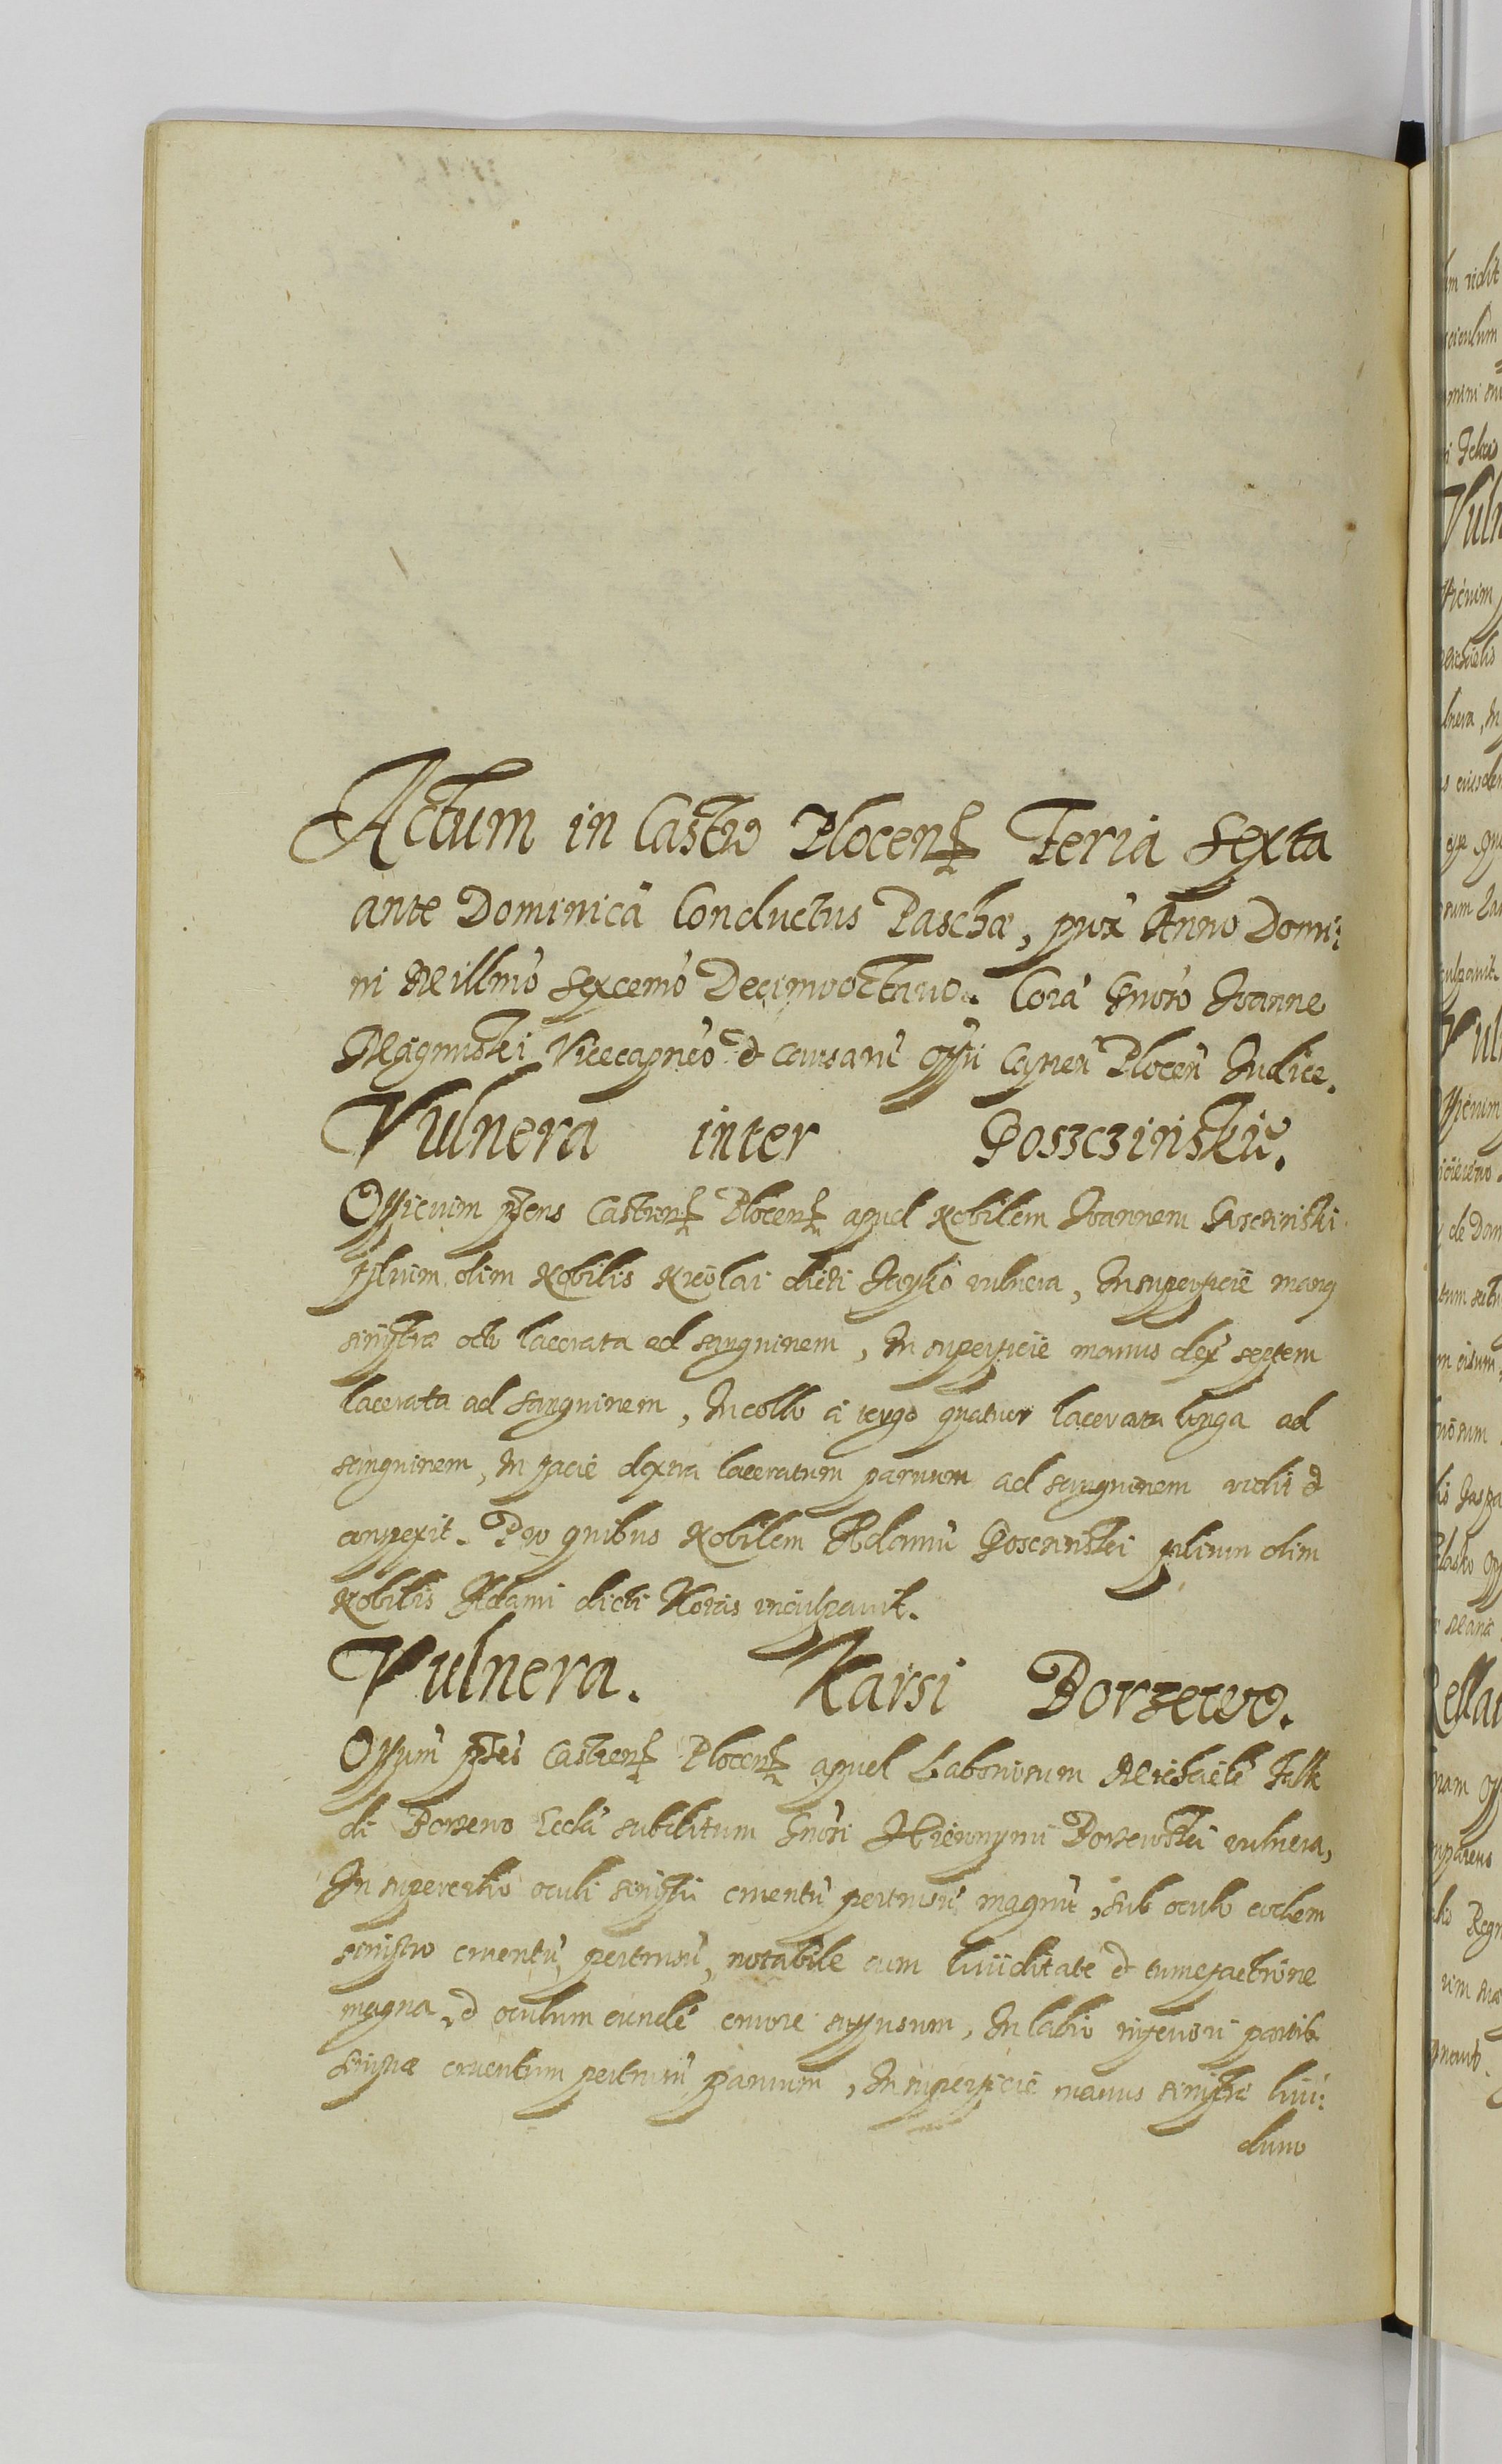 Actum in Castro Plocens Feria Sexta
ante Dominicā Conductus Paschæ, prox Anno Domi:
ni Millmo Sexcemo Decimooctavo. Corā Gnoso Joanne
Magnuski Vicecapneo & causarū Offii Capnei Plocen Iudice.
Vulnera inter Goszczinskiū.
Officium pns Castrens Plocens apud Nobilem Joannem Gosczinski
filium olim Nobilis Nicolai dicti vulnera, In superficie manq
sinistræ octo lacerata ad sanguinem, In superficie manus dex septem
lacerata ad sanguinem, In collo a tergo quatuor lacerata longa ad
sanguinem, In facie dextra laceratum parvum ad sanguinem vidit &
conspexit. Pro quibus Nobilem Adamū Gosczinski filium olim
Nobilis Adami dicti inculpavit.
Vulnera. Karsi Borzewo.
Offum pns Castrens Plocens apud Laboriosum Michaelē Falk
di Borzewo subditum Gnosi Hieronymi Borzewski vulnera,
In supercilio oculi sinistri cruentū pertusū magnū, sub oculo eodem
sinistro cruentū pertusū, notabile cum liviiditate & tumefactione
magna, & oculum eundē cruore suffusum, In labio inferiori partis
sinistræ cruentum pertusū parvum, In superficie manus sinistræ livi:
dum